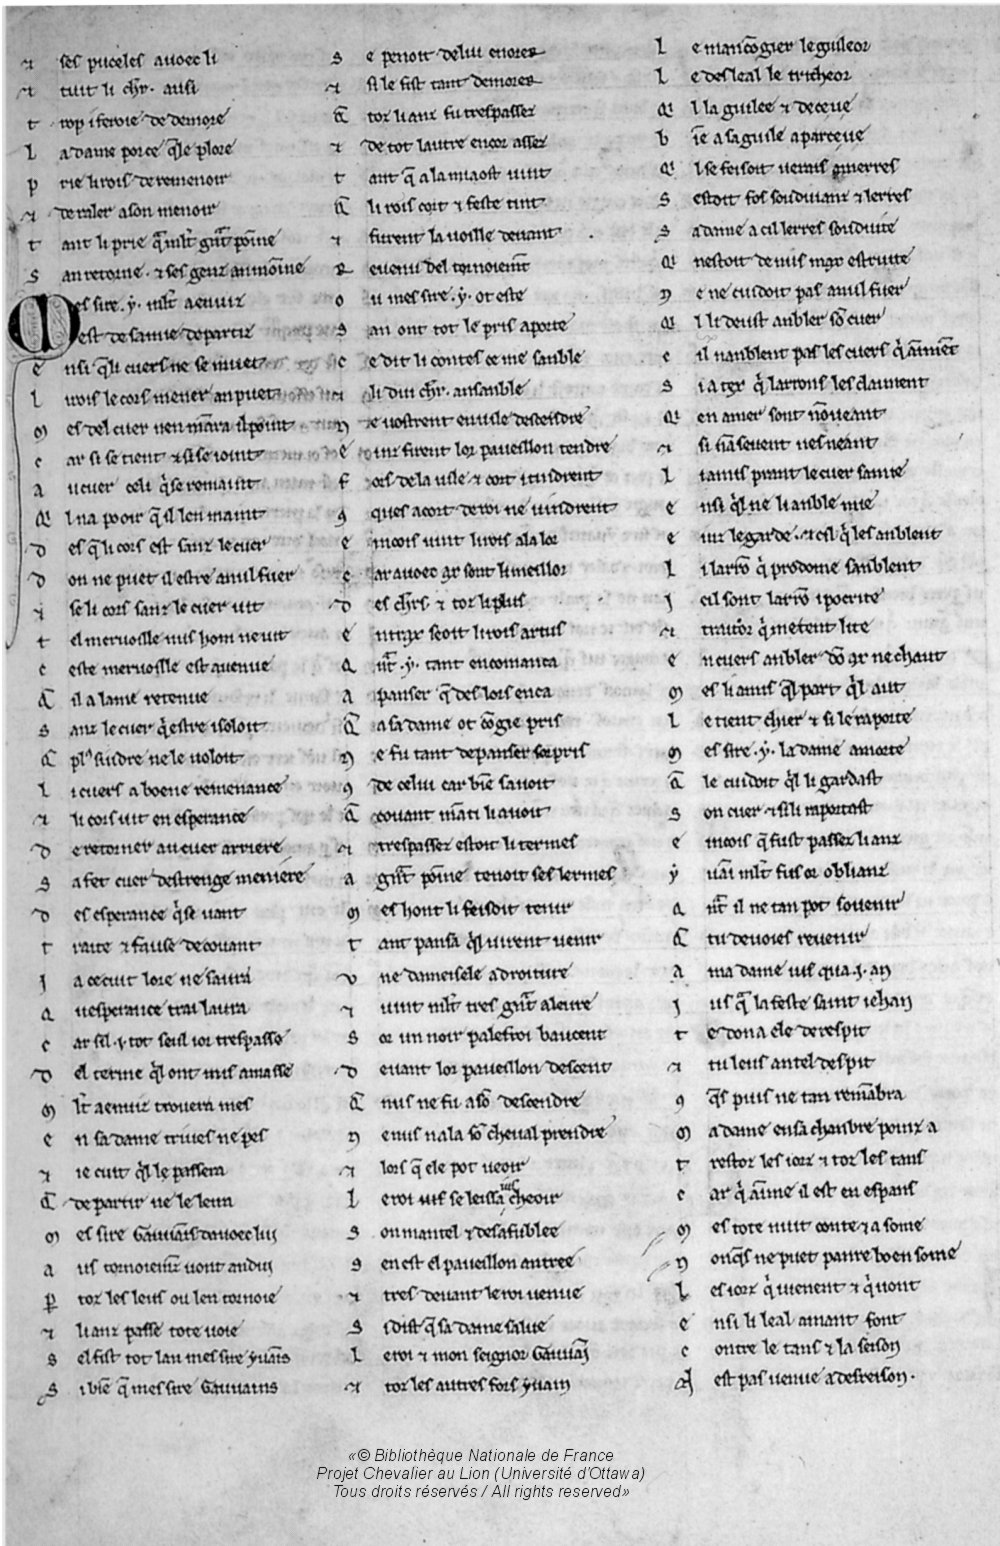 ⁊ ses puceles avoec li
⁊ tuit li chr̃. ausi
t rop i feroie de demore
l a dame por ce q̃ le plore
p rie li rois de remenoir
⁊ de raler a son menoir
t ant li prie q̃ a mlt̃ grãt poine
s an retorne. ⁊ ses genz an moinne
M es sire .y. mlt̃ a enviz
est de samie departiz
e nsi q̃ li cuers ne se muet
l i rois le cors mener an puet
m es del cuer n en manra il point
c ar si se tient ⁊ si se joint
a u cuer celi q̃ se remaint
q̃ l na pooir q̃ il len maint
d es q̃ li cors est sanz le cuer
d on ne puet il estre a nul fuer
⁊ se li cors sanz le cuer vit
t el mervoille nus hom ne vit
c este mervoille est avenue
q̃ il a lame retenue
s anz le cuer q̃ estre i soloit
q̃ pl' siudre ne le voloit
l i cuers a boene remenance
⁊ li cors vit en esperance
d e retorner au cuer arriere
s a fet cuer destrenge meniere
d es esperance q̃ se vant
t raite ⁊ fause de covant
j a ce cuit lore ne savra
q uesperance trai lavra
c ar sil .j. tot seul jor trespasse
d el terme q̃l ont mis a masse
m lt̃ a enviz trovera mes
e n sa dame trives ne pes
⁊ je cuit q̃l le passera
q̃ departir ne le leira
m es sire Gauvains davoec lui
a us tornoiemẽz vont andui
ꝑ toz les leus ou len tornoie
⁊ li anz passe tote voie
s el fist tot lan mes sire yvains
s i biẽ q̃ mes sire Gauvains
s e penoit de lui enorer
⁊ si le fist tant demorer
q̃ toz li anz fu trespassez
⁊ de tot lautre encor assez
t ant q̃ a la miaost vint
q̃ li rois cort ⁊ feste tint
⁊ furent la voille devant
r evenu del tornoiemãt
o u mes sire .y. ot este
s an ont tot le pris aporte
c e dit li contes ce me sanble
⁊ li dui chr̃. ansanble
n e vostrent en vile descendre
e inz firent lor paveillon tendre
f ors de la vile ⁊ cort i tindrent
ꝯ ques a cort de roi ne vindrent
e incois vint li rois a la lor
c ar avoec ax sont li meillor
d es chr̃s. ⁊ toz li plus
e ntrax seoit li rois artus
q ñt .y. tant encomanca
a panser q̃ des lors enca
q̃ a sa dame ot cõgie pris
n e fu tant de panser sorpris
ꝯ de celui car biẽ savoit
q̃ covant mãti li avoit
⁊ trespassez estoit li termes
a grãt poine tenoit ses lermes
m es hont li feisoit tenir
t ant pansa q̃l virent venir
v ne dameisele a droiture
⁊ vint mlt̃ tres grãt aleure
s or un noir palefroi baucent
d evant lor paveillon descent
q̃ nus ne fu a so descendre
n e nus nala sõ cheval prendre
⁊ lors q̃ ele pot veoir
l e roi si se leissa jus cheoir
s on mantel ⁊ desafublee
s en est el paveillon antree
⁊ tres devant le roi venue
s i dist q̃ sa dame salue
l e roi ⁊ mon seignor Gauvain
⁊ toz les autres fors yvain
l e mancõgier le guileor
l e desleal le tricheor
q̃ l la guilee ⁊ deceue
b iẽ a sa guile aparceue
q̃ l se feisoit verais amerres
s estoit fos souduianz ⁊ lerres
s a dame a cil lerres souduite
q̃ nestoit de nus max estruite
n e ne cuidoit pas a nul fuer
q̃ l li deust anbler sõ cuer
c il nanblent pas les cuers q̃ aimment
s i a tex q̃ larrons les claiment
q̃ en amer sont nõveant
⁊ si nẽ sevent nes neant
l i amis prant le cuer samie
e nsi q̃l ne li anble mie
e inz le garde. ⁊ cil q̃ les anblent
l i larrõ q̃ prodome sanblent
j cil sont larrõ ipocrite
⁊ traitor q̃ metent lite
e n cuers anbler dõ ax ne chaut
m es li amis q̃l part q̃l aut
l e tient chier ⁊ si le raporte
m es sire .y. la dame a morte
q̃ le cuidoit q̃l li gardast
s on cuer ⁊ si li raportast
e incois q̃ fust passez li anz
y vain mlt̃ fus or oblianz
q ñt il ne tan pot sovenir
q̃ tu devoies revenir
a ma dame jus qua .j. an
j us q̃ la feste saint jehan
t e dona ele de respit
⁊ tu leus an tel despit
ꝯ q̃s puis ne tan remãbra
m a dame en sa chanbre poinz a
t restoz les jorz ⁊ toz les tans
c ar q̃ aimme il est en espans
m es tote nuit conte ⁊ asome
n onq̃s ne puet panre boen some
l es jorz q̃ vienent ⁊ q̃ vont
e nsi li leal amant font
c ontre le tans ⁊ la seison
n est pas venue a desreison.
«© Bibliothèque Nationale de France
Projet Chevalier au Lion (Université d'Ottawa)
Tous droits réservés / All rights reserved»